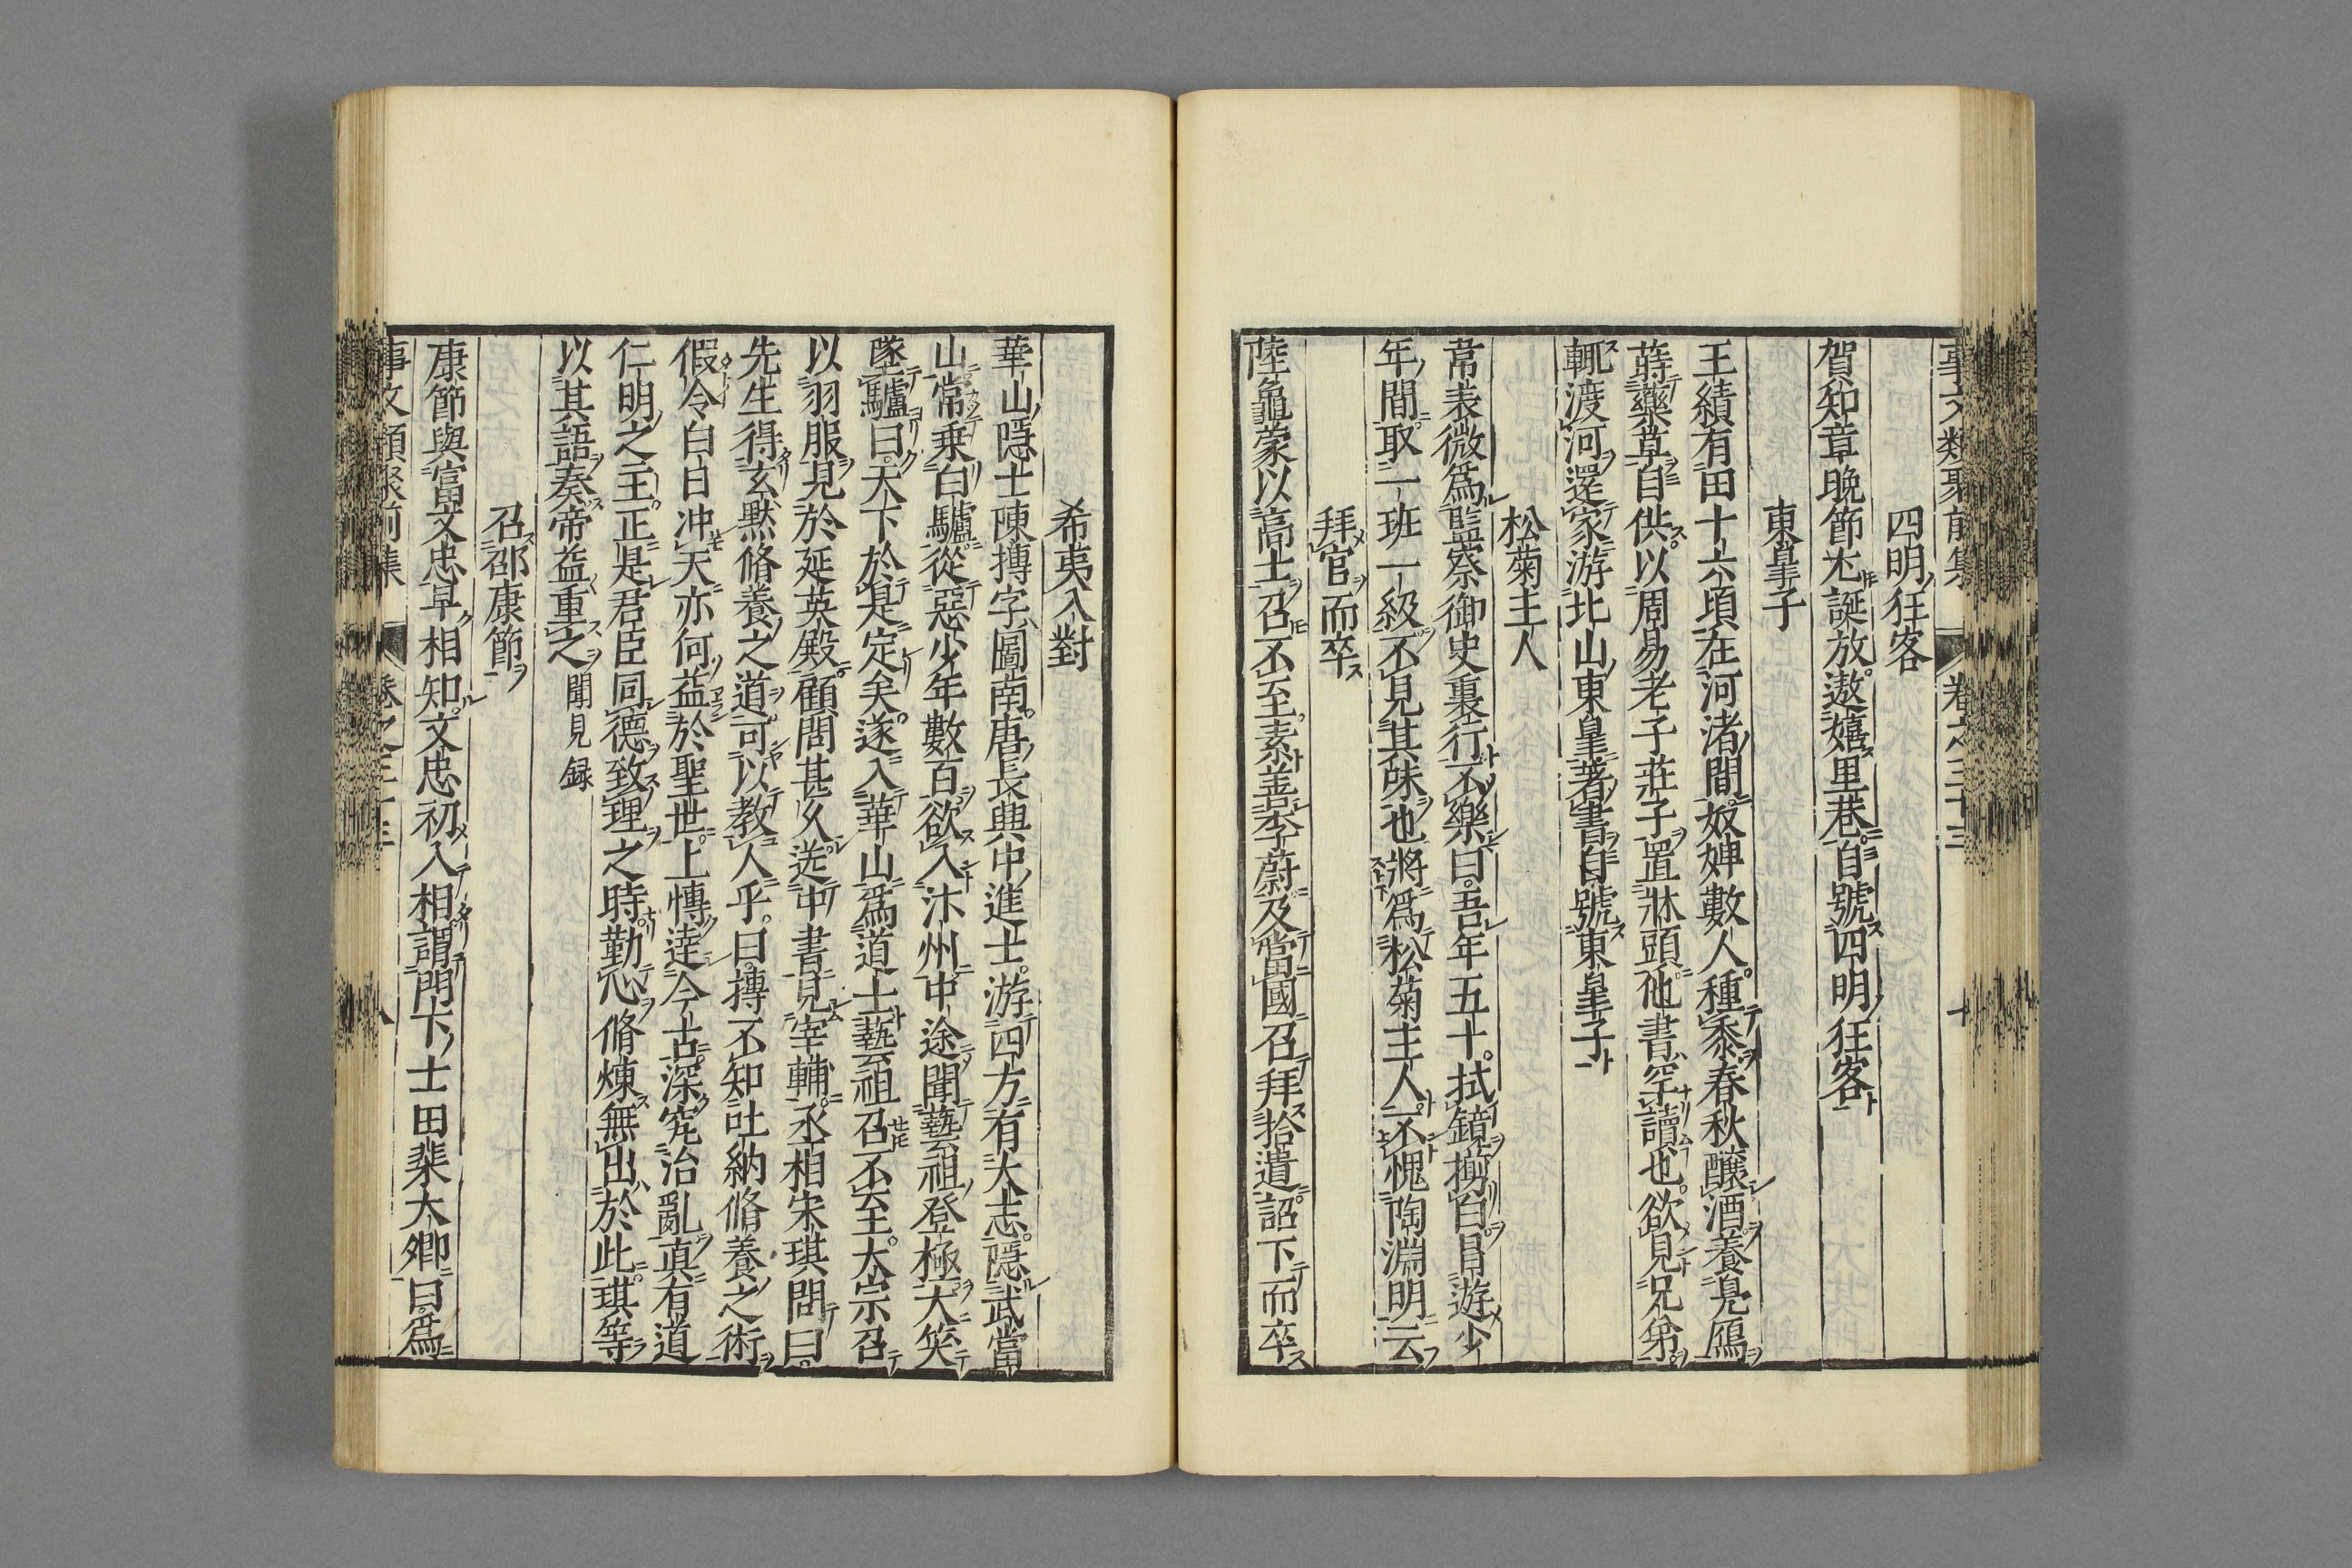 事文類聚前集 卷之三十三 十
四明狂客
賀知章晚節尤誕放遨嬉里巷自號四明狂客
東皐子
王績有田十六頃在河渚間奴婢數人種黍春秋釀酒養鳬鴈
蒔藥草自供以周易老子莊子置牀頭他書罕讀也欲見兄弟
輒渡河還家游北山東皐著書自號東皐子
松菊主人
常表微爲監察御史裏行不樂曰吾年五十拭鏡擲白冒遊少
年間取一班一級不見其味也將爲松菊主人不愧陶淵明云
拜官而卒
陸龜蒙以高士召不至素善李蔚及當國召拜拾遺詔下而卒
希夷入對
華山隱士陳摶字圖南唐長興中進士游四方有大志隱武當
山常乗白驢從惡少年數百欲入汴州中途聞藝祖登極大笑
墜驢曰天下於是定矣遂入華山爲道士藝祖召不至太宗召
以羽服見於延英殿顧問甚久送中書見宰輔丞相宋琪問曰
先生得玄黙脩養之道可以教人乎曰摶不知吐納脩養之術
假令白日冲天亦何益於聖世上博達今古深究治亂真有道
仁明之主正是君臣同德致理之時勤心脩煉無出於此琪等
以其語奏帝益重之 聞見録
召邵康節
康節與富文忠早相知文忠初入相謂門下士田棐大卿曰爲
事文類聚前集 卷之三十三 八